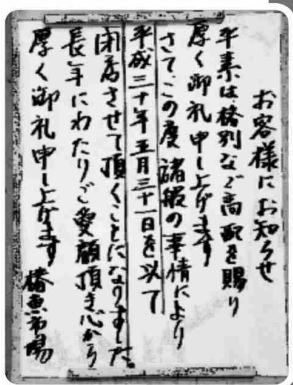 お客様にお知らせ
平素は格別なご高配を賜り
厚く御礼申し上げます
さて、この度諸般の事情により
平成三十年五月三十一日を以て
閉店させて頂くことになりました。
長年にわたりご愛顧頂き心から
厚く御礼申し上げます
椿魚市場